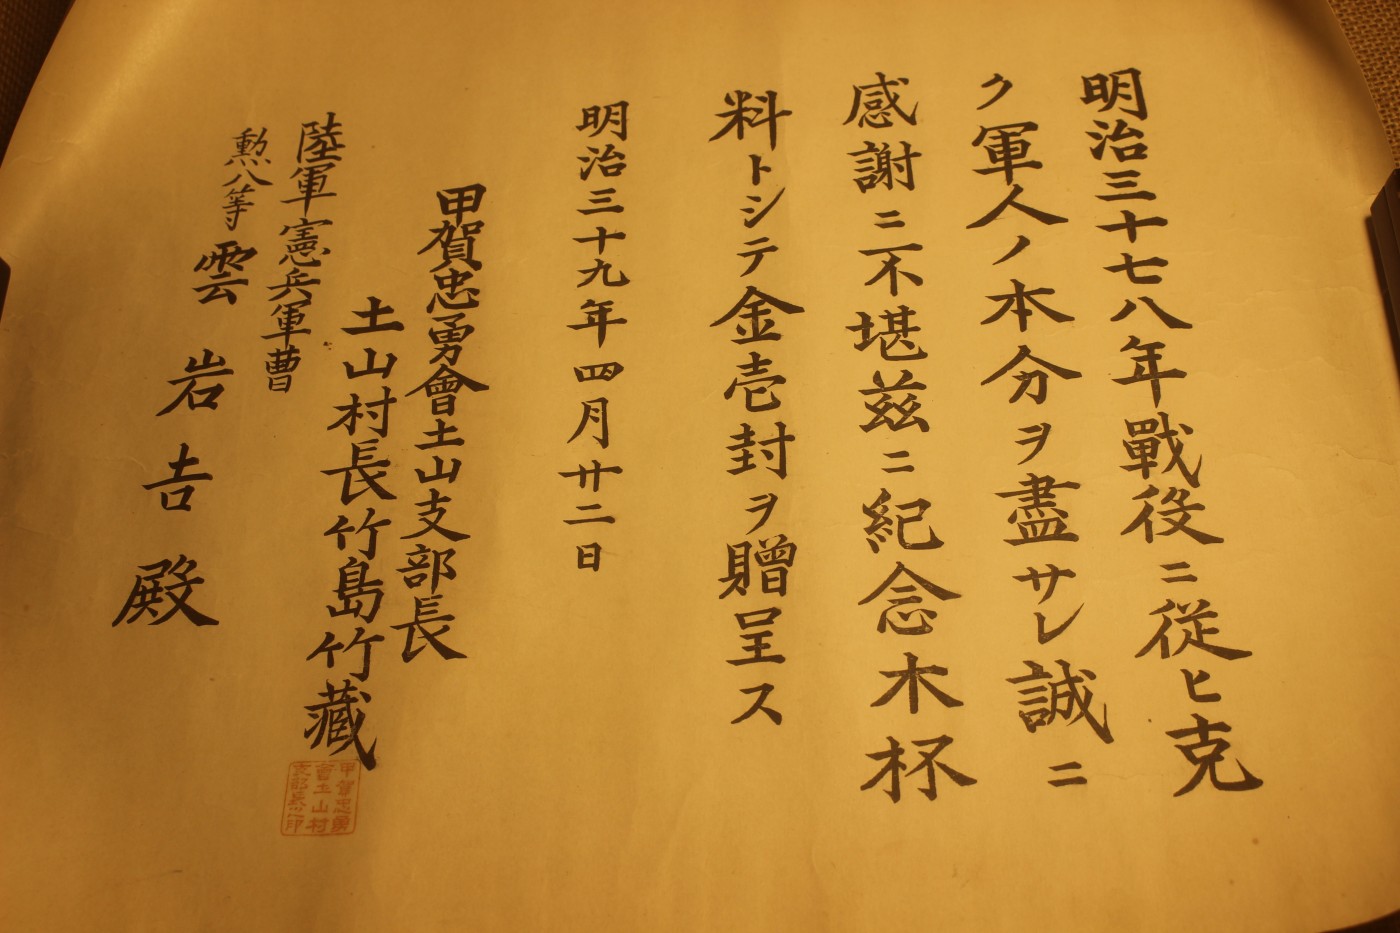 明治三十七八年戰役ニ従ヒ克
ク軍人ノ本分ヲ盡サレ誠ニ
感謝ニ不堪茲ニ紀念木杯
料トシテ金壱封ヲ贈呈ス
明治三十九年四月廿二日
甲賀忠勇會土山支部長
土山村長竹島竹藏
陸軍憲兵軍曹
勲八等
雲岩吉殿
甲賀忠勇
會土山村
支部長之印